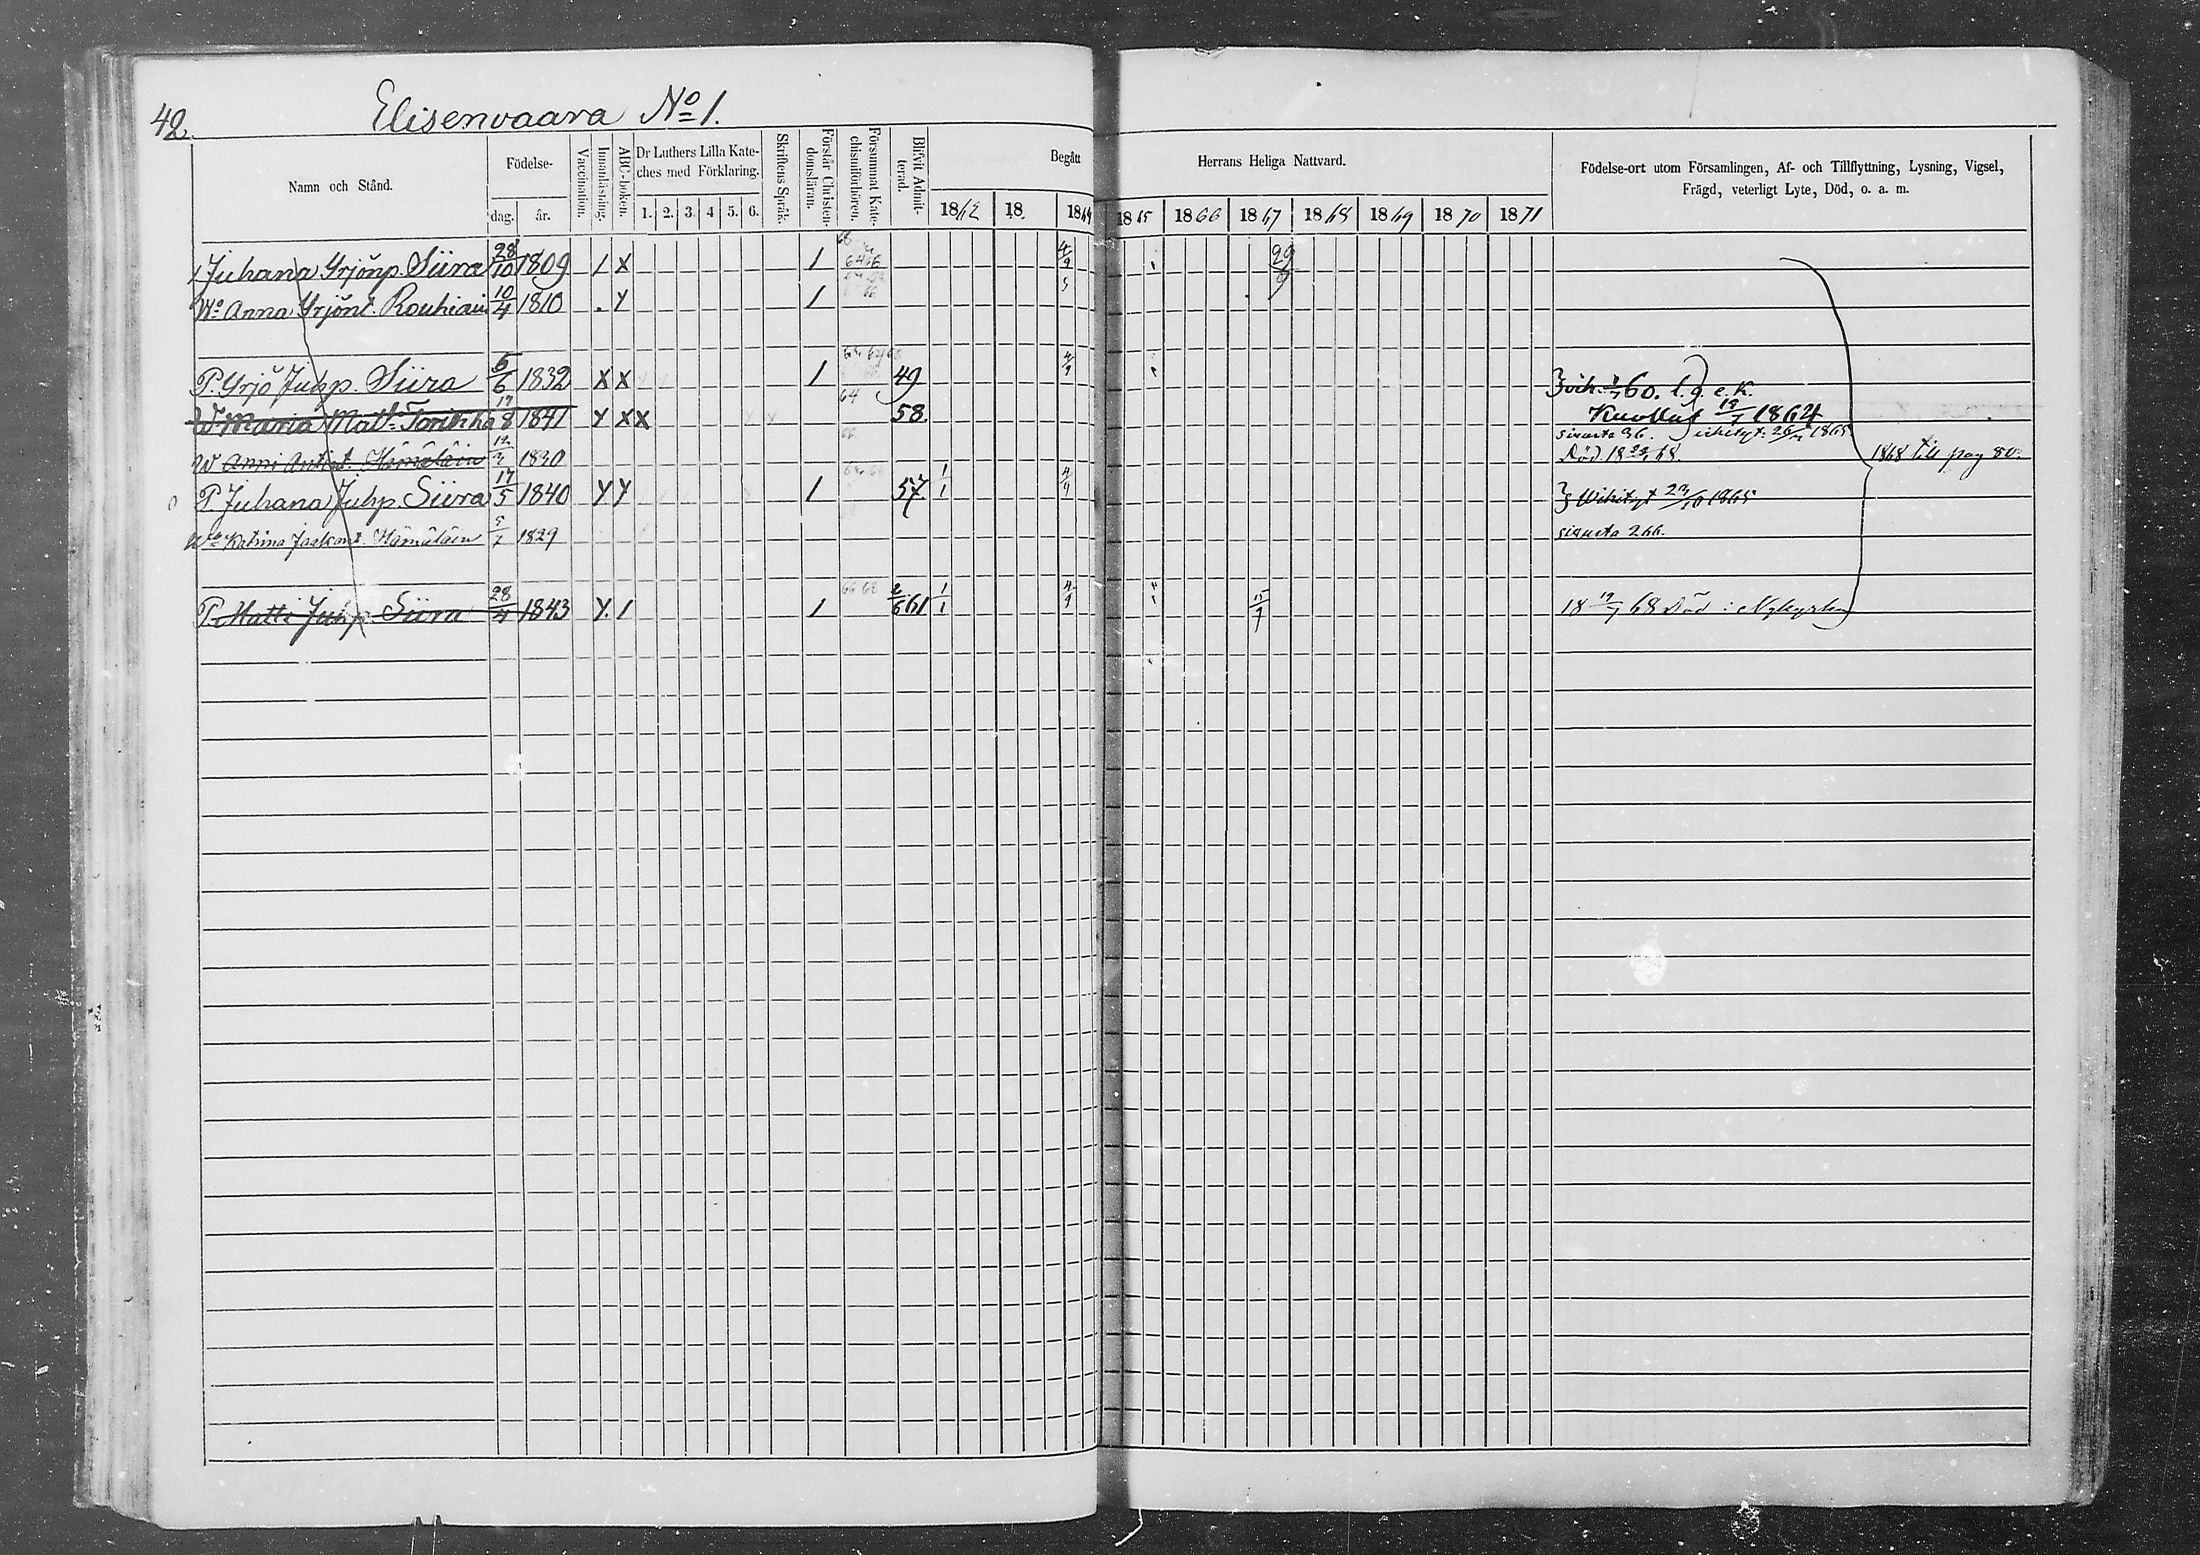 42.
Elisenvaara No 1.
Namn och Stånd.
Födelse-
dag. år.
Vaccination.
Innanläsning.
ABC-boken.
Dr Luthers Lilla Kate-
ches med Förklaring.
1. 2. 3. 4 5. 6.
Skriftens Språk.
Förstår Christen-
domsläran.
Försummat Kate-
chismiförhören.
Blifvit Admit-
terad.
Begått
Herrans Heliga Nattvard.
1862 18 1864 1865 1866 1867 1868 1869 1870 1871
Födelse-ort utom Församlingen, Af- och Tillflyttning, Lysning, Vigsel,
Frägd, veterligt Lyte, Död, o. a. m.
Juhana Yrjönp. Siira 28/10 1809 1 X 1 4/9 29/9
Wo Anna Yrjönt. Rouhiain 10/4 1810 . Y 1
P. Yrjö Juhp. Siira 6/6 1832 X X 1 49 4/9 60. l. g. e. K.
W Maria Mat 8 1841 Y X X 64 58. Kuollut 19/7 1864
sivusta 36. 1865
W Anni Antint. Hämäläin 1830 Död 18 68. 1868 till pag 80.
P. Juhana Juhp. Siira 17/5 1840 Y Y 1 57 1/1 4/9 Wihityt 1865
Wo Katrina Jaakont. Hämäläin 5/7 1829 sivusta 266.
P. Matti Juhp Siira 28/4 1843 Y. 1 1 66 68 2/6 61 1/1 4/9 15/9 18 19/7 68 Död i Nykyrka